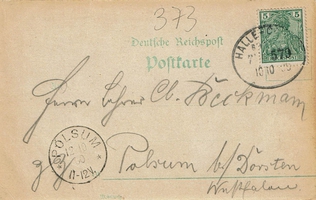 373
Deutsche Reichspost
Postkarte
5
HALLE
579
Herrn Lehrer Cl. Beckmann
POLSUM
11-12V.
Polsum b/Dorsten
Westfalen